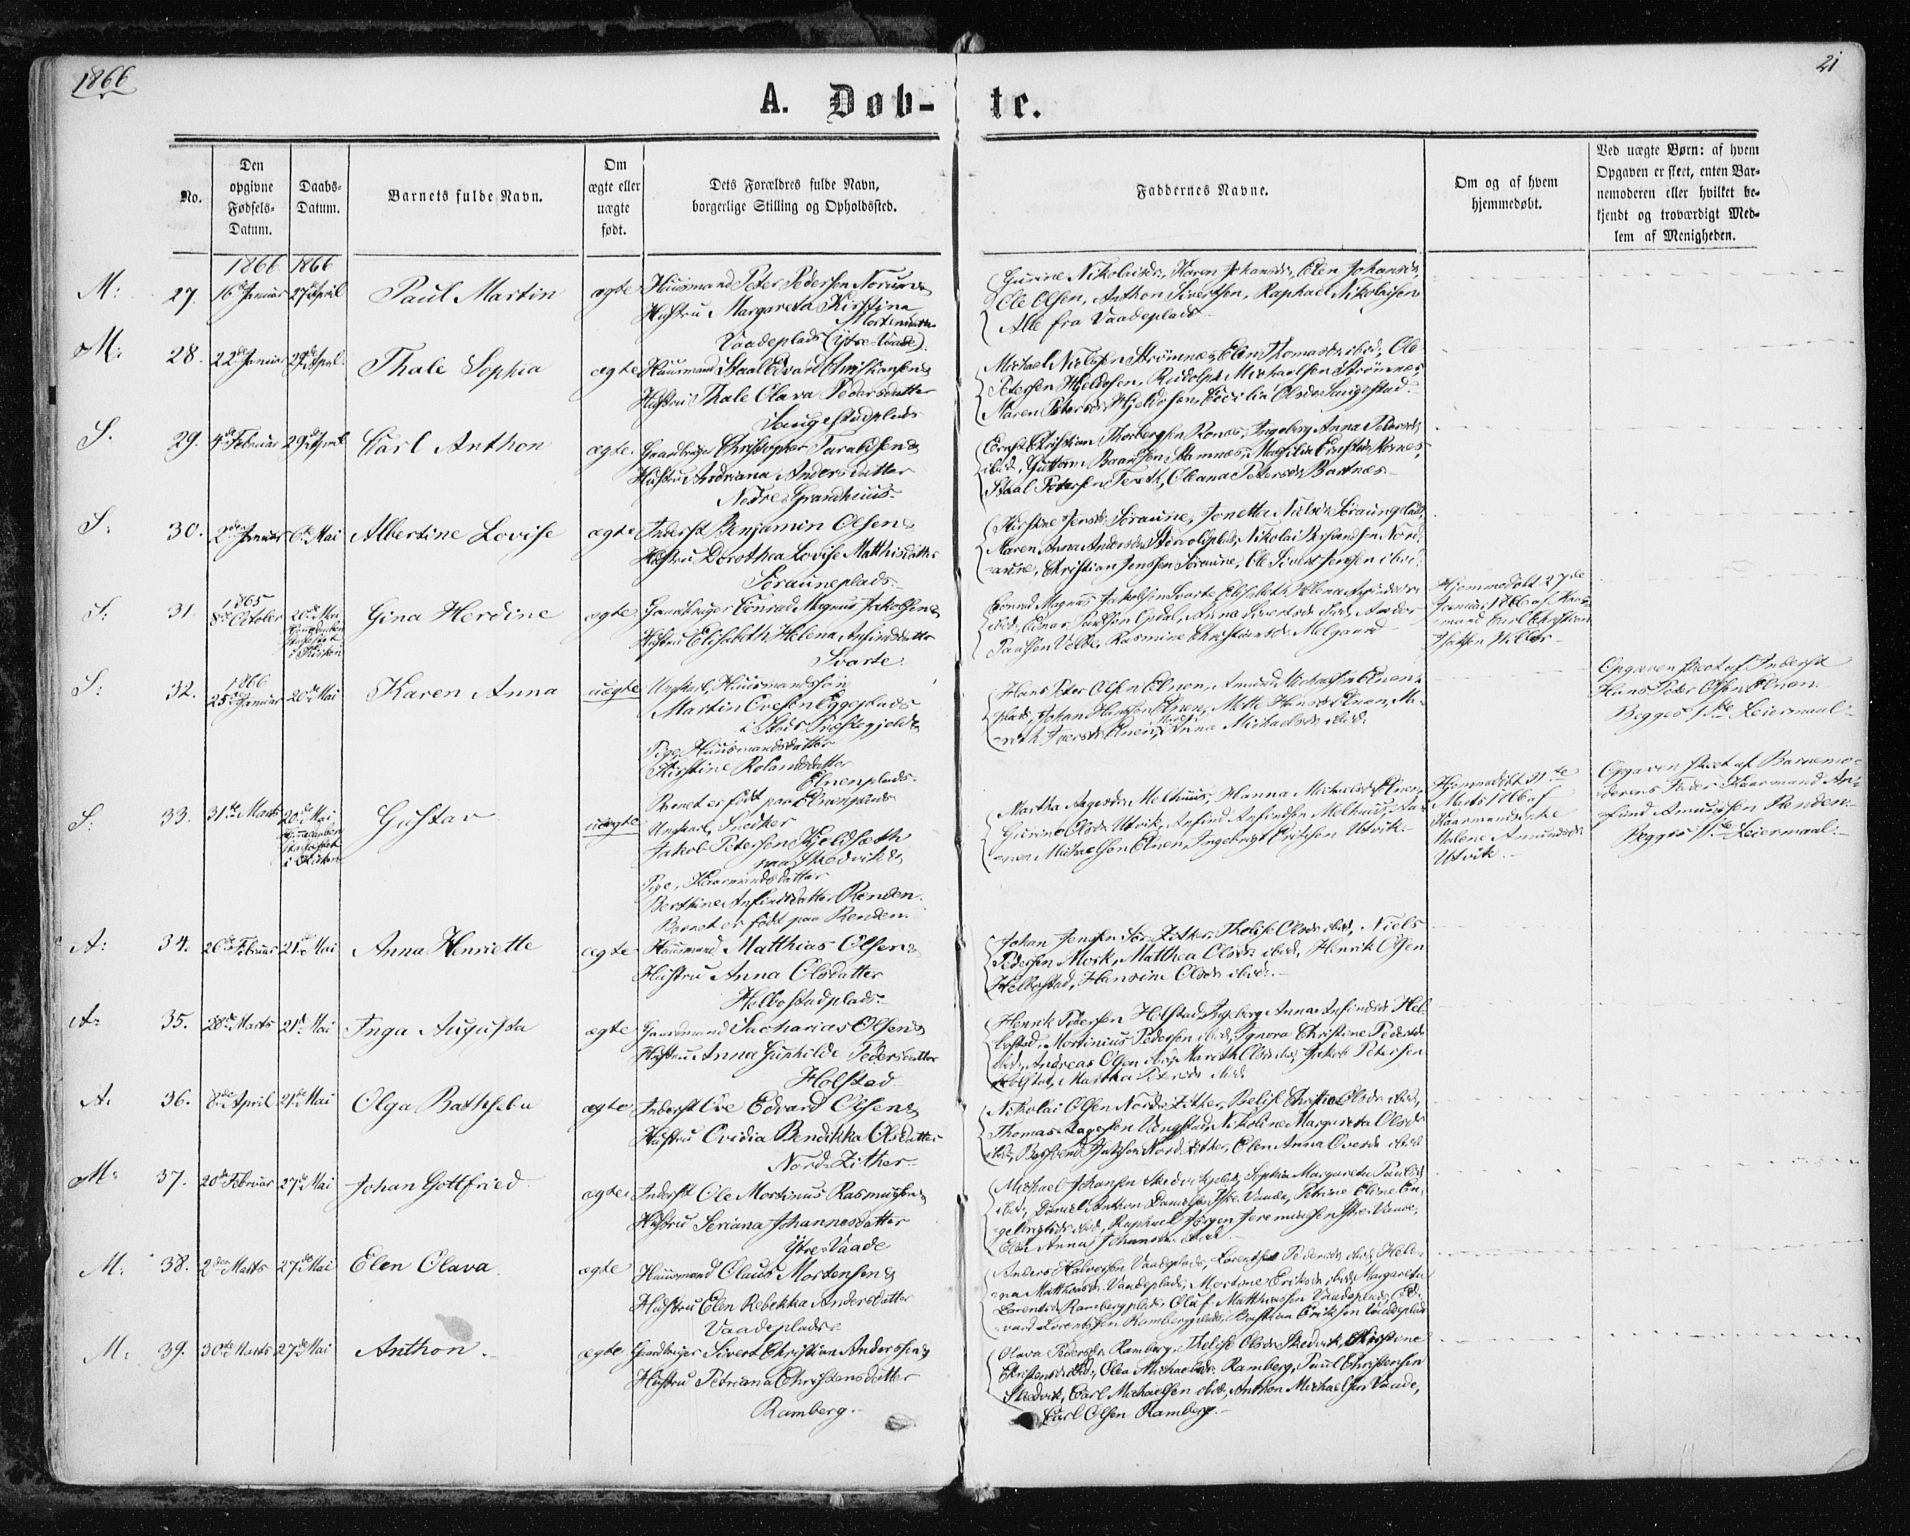 1866
21
A. Døb-te.
No.
Den opgivne Fødsels-Datum.
Daabs-Datum.
Barnets fulde Navn.
Om ægte eller uægte født.
Dets Forældres fulde Navn,
borgerlige Stilling og Opholdssted.
Faddernes Navne.
Om og af hvem
hjemmedøbt.
Ved uægte Børn: af hvem
Opgaven er skeet, enten Bar-
nemoderen eller hvilket be-
kjendt og troværdigt Med-
lem af Menigheden.
1866 1866
M: 27. 16de Januar 27de April Paul Martin ægte Huusmand Peter Pedersen Norum &
Hustru Margareta Kirstina
Mortensdatter
Vaadeplads (Ytre Vaade).
Gurine Nikolaisdr, Karen Johansdr, Elen Johansdr,
Ole Olsen, Anthon Sivertsen, Raphael Nikolaisen
Alle fra Vaadeplads
M: 28. 22de Januar 29de April Thale Sophia ægte Huusmand Staal Edvard Christiansen &
Hustru Thale Olava Pedersdatter
Michael Nielsen Strømnes, Elen Thomasdr ibid, Ole
Petersen Hjeldosen, Rudolph Michaelsen Strømnes
Maren Petersdr Hjeldosen, Cecilia Olsdr
S. 29. 4de Februar 29de April Carl Anthon ægte. Gaardbruger Christopher Taraldsen &
Hustru Andriana Andersdatter
Nedre Grandhuus.
Ernst Christian Thorbergsen Konæs, Ingeborg Anna Petersdr
ibid, Guttorm Baardsen Stamnæs,
Staal Petersen Tveth, Oleana Petersdr Bartnæs
S: 30. 2den Januar 6te Mai Albertine Lovise ægte Inderst Benjamin Olsen &
Hustru Dorothea Lovise Matthisdatter
Sørauneplads.
Kirstine Jensdr Søraune, Jonetta Nielsdr Søraunplads
Maren Anna Andersdr Nikolai
aune, Christian Jenssen Søraune, Ole Sivert Jensen ibid.
1865
S: 31. 8de October 20de Mai Gina Herdine ægte Gaardbruger Conrad Magnus Jakobsen &
i Kirken
Hustru Elisabeth Helena Anfindsdatter
Svarte
Conrad Magnus Jakobsen Svarte Elisabeth Helena
ibid, Edvard Opdal, Anna Sivertsdr ibid,
Paulsen Velde, Rasmine Christiansdr Melgaard
Hjemmedøbt 27de
Januar 1866 af
mand Carl Christian
1866
S: 32. 25de Januar 20de Mai Karen Anna uægte Ungkarl, Huusmandssøn
Martin Ovesen Eggeplads
i Stods Præstegjeld &
Pige Huusmandsdatter
Kirstine Rolandsdatter
Elnenplads.
Barnet er født paa Elnenplads
Hans Peter Olsen Elnen, Michaelsen Elnen
plads, Johan Hansen Elnen, Mette Hansdr Elnan, M-
Anna Michaelsdr ibid.
Opgaven skeet af Inderst
Hans Peter Olsen Elnan.
Begges 1ste Leiermaal
S: 33. 31te Marts 20de Mai Gustav uægte Ungkarl, Snedker
i Kirken
Jakob Petersen Kjeldsæth
paa Skedvik &
Pige, Kaarmandsdatter
Berthine Anfindsdatter Renden.
Barnet er født paa Renden.
Martha Aagesdr Melhuus, Hanna Michaelsdr Elnen,
Gurine Olsdr Utvik, Anfind Anfindsen Melhuus,
nen Michaelsen Elnen, Ingebrigt Erichsen Utvik.
Hjemmedøbt 31te
Marts 1866 af
Kaarmandsenke
Malene Amundsdr
Utvik.
Opgaven skeet af Barnemo-
derens Fader Kaarmand An-
find Amundsen Renden.
Begges 1ste Leiermaal.
A: 34. 20de Februar 21de Mai Anna Henriette ægte Huusmand Matthias Olsen &
Hustru Anna Olsdatter
Helbostadplads.
Johan Jensen Sør Zither, Thalise Olsdr ibid, Niels
Pedersen Mork, Matthea Olsdr ibid, Henrik Olsen
Helbostad, Hansine Olsdr ibid.
A: 35. 28de Marts 21de Mai Inga Augusta ægte Gaardmand Sacharias Olsen &
Hustru Anna Gunhilde Pedersdatter
Holstad
Henrik Petersen Helstad, Ingeborg Anna Anfindsdr Hel-
bostad, Martinius Pedersen ibid, Ignora Christine Pedersdr
ibid, Andreas Olsen ibid, Mareth Olsdr ibid, Jakob Petersen
Holstad, Martha Petersdr ibid.
A: 36. 8de April 21de Mai Olga Bathseba ægte Inderst Ove Edvard Olsen &
Hustru Ovidia Bendikka Olsdatter
Nord-Zither.
Nikolai Olsen Nord Zither, Belise Christine Olsdr ibid,
Thomas Aagesen Vengstad, Nikoline Margareta Olsdr
ibid, Nord Zither, Elen Anna Ovesdr ibid
M: 37. 20de Februar 27de Mai Johan Gottfried ægte Inderst Ole Martinus Rasmussen &
Hustru Seriana Johannesdatter
Ytre Vaade
Michael Johansen Skedvikplads, Sophia Margareta Paulsdr
ibid, Daniel Anthon Danielsen Ytre Vaade, Petrine Elene En-
gelbregtsdr ibid, Raphael Jørgen Jeremiassen Ytre Vaade,
Elen Anna Johansdr ibid
M: 38. 2den Marts 27de Mai Elen Olava ægte Huusmand Claus Mortensen &
Hustru Elen Rebekka Andersdatter
Vaadeplads.
Anders Halvorsen Vaadeplads, Lorentse Pedersdr ibid, Hele-
na Matthiasdr Vaadeplads, Martine Eriksdr ibid, Margareta
Lorentsdr Rambergplads, Oluf Matthiassen Vaadeplads, Ed-
vard Lorentssen Rambergplads, Bastian Eriksen Vaadeplads
M: 39. 30te Marts 27de Mai Anthon. ægte Gaardbruger Sivert Christian Anderssen &
Hustru Petriana Christensdatter
Ramberg.
Olava Pedersdr Ramberg, Thalise Olsdr Skedvik, Kirstine
Christensdr ibid, Olea Michaelsdr Ramberg, Paul Christensen
Skedvik, Carl Michaelsen ibid, Anthon Michelsen Vaade,
Carl Olsen Ramberg.